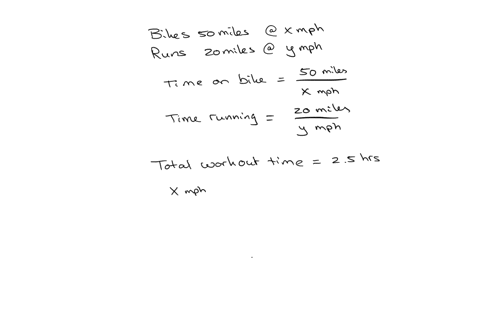 Bikes 50 miles @ x mph
Runs 20 miles @ y mph
Time on bike = 50 miles / x mph
Time running = 20 miles / y mph
Total workout time = 2.5 hrs
x mph